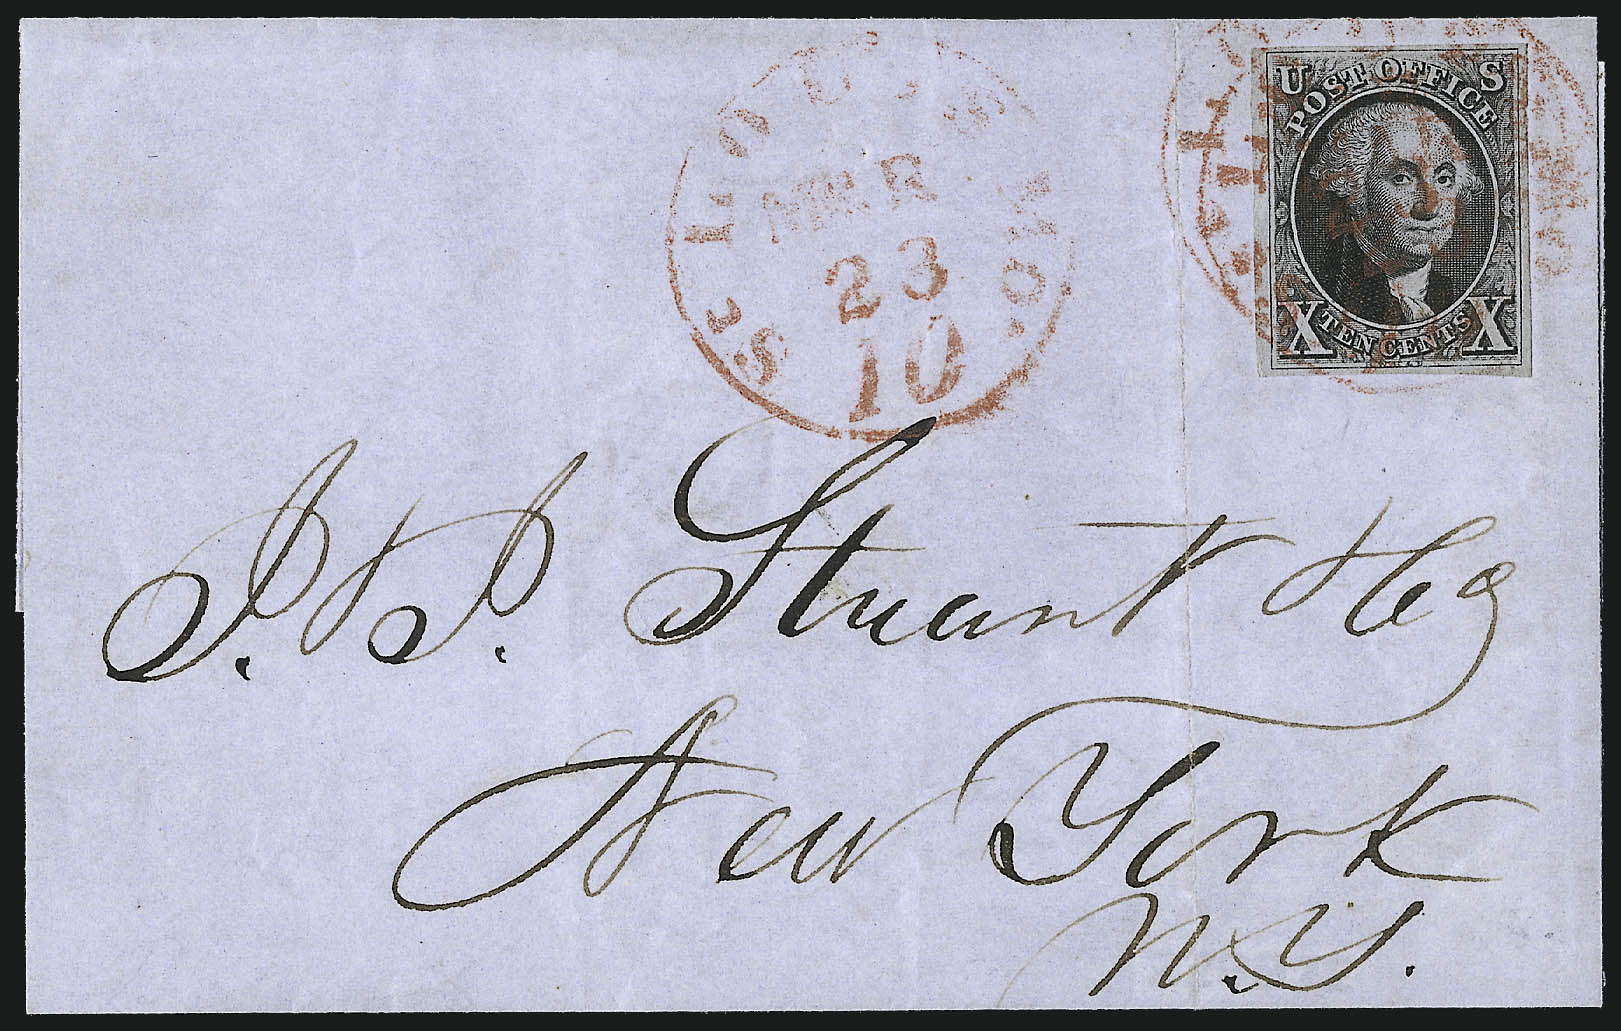 ST LOUIS MO.
MAR
23
10
U S
POST OFFICE
X TEN CENTS X
J. J. Stuart
New York
N.Y.